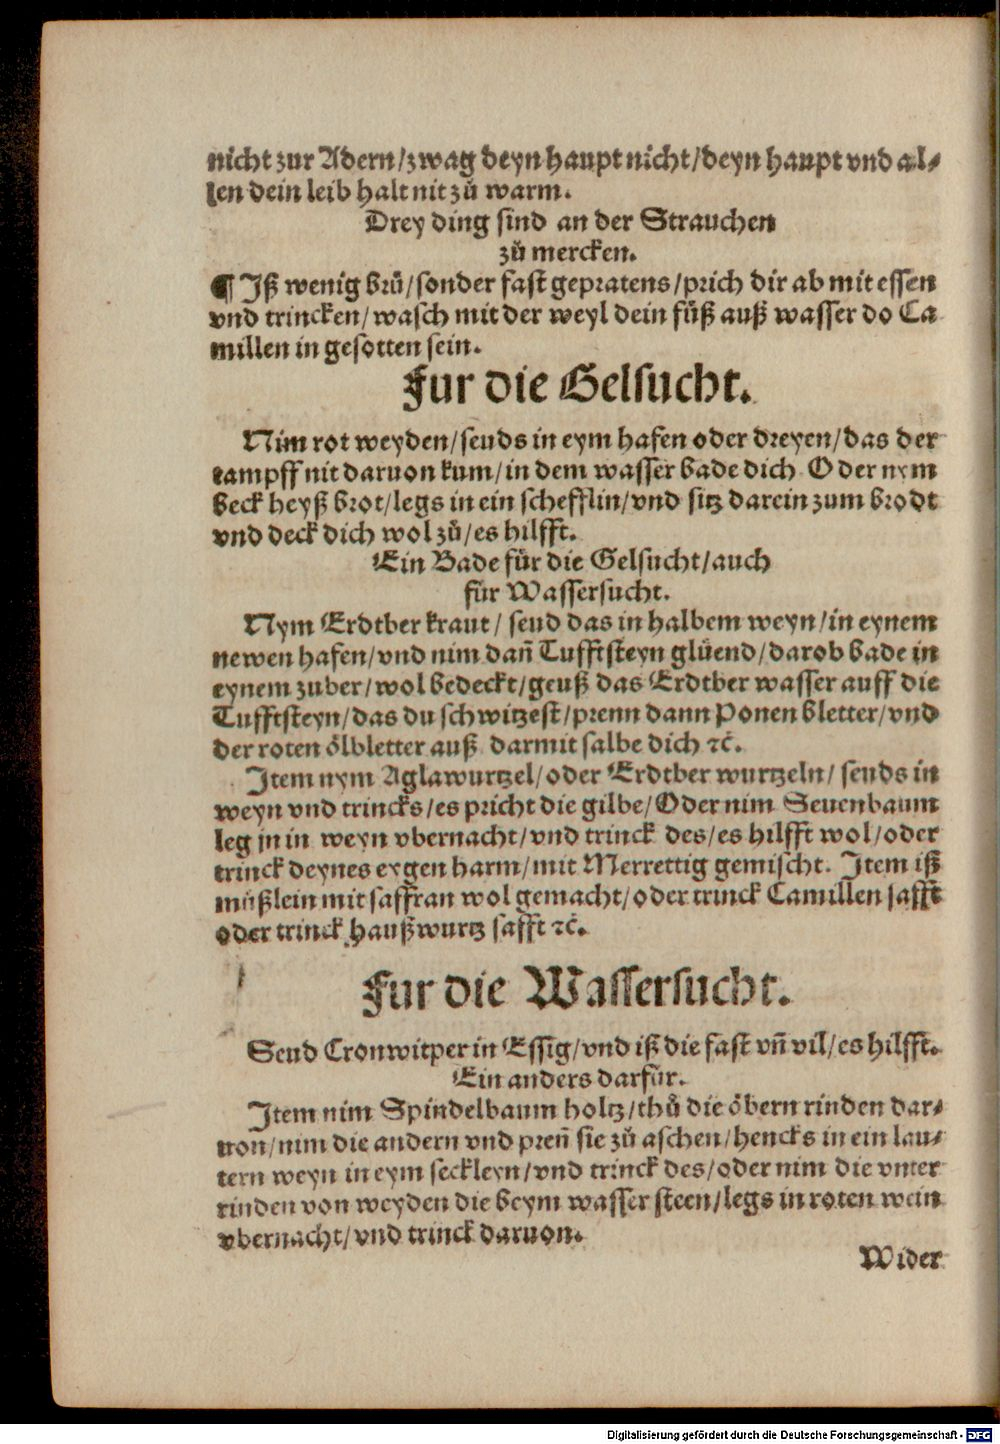 nicht zur Adern/zwag deyn haupt nicht/deyn haupt vnd al⸗
len dein leib halt nit zů warm.
Drey ding sind an der Strauchen
zů mercken.
¶ Jß wenig brů/sonder fast gepratens/prich dir ab mit essen
vnd trincken/wasch mit der weyl dein fůß auß wasser do Ca
millen in gesotten sein.
Fur die Gelsucht.
Nim rot weyden/seuds in eym hafen oder dreyen/das der
tampff nit daruon kum/in dem wasser bade dich Oder nym
beck heyß brot/legs in ein schefflin/vnd sitz darein zum brodt
vnd deck dich wol zů/es hilfft.
Ein Bade für die Gelsucht/auch
für Wassersucht.
Nym Erdtber kraut/ seud das in halbem weyn/in eynem
newen hafen/vnd nim dañ Tufftsteyn glüend/darob bade in
eynem zuber/wol bedeckt/geuß das Erdtber wasser auff die
Tufftsteyn/das du schwitzest/prenn dann Ponen bletter/vnd
der roten ölbletter auß darmit salbe dich ⁊c̃.
Jtem nym Aglawurtzel/oder Erdtber wurtzeln/ seuds in
weyn vnd trincks/es pricht die gilbe/Oder nim Seuenbaum
leg jn in weyn vbernacht/vnd trinck des/es hilfft wol/oder
trinck deynes eygen harm/mit Merrettig gemischt. Jtem iß
můßlein mit saffran wol gemacht/oder trinck Camillen safft
oder trinck haußwurtz safft ⁊c̃.
Fur die Wassersucht.
Seud Cronwitper in Essig/vnd iß die fast vñ vil/es hilfft.
Ein anders darfür.
Jtem nim Spindelbaum holtz/thů die öbern rinden dar⸗
uon/nim die andern vnd preñ sie zů aschen/hencks in ein lau⸗
tern weyn in eym seckleyn/vnd trinck des/oder nim die vnter
rinden von weyden die beym wasser steen/legs in roten wein
vbernacht/vnd trinck daruon.
Wider
Digitalisierung gefördert durch die Deutsche Forschungsgemeinschaft - DFG